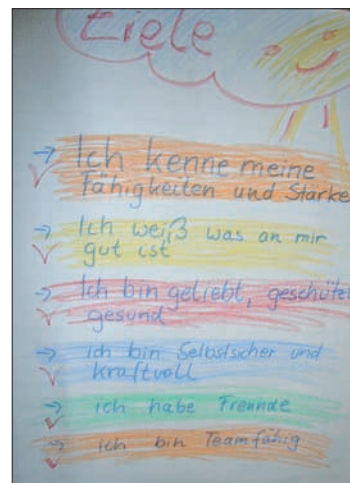 Ziele
→ Ich kenne meine
Fähigkeiten und Stärke
→ Ich weiß was an mir
gut ist
→ Ich bin geliebt, geschütz
gesund
→ ich bin Selbstsicher und
kraftvoll
→ ich habe Freunde
→ ich bin Teamfähig